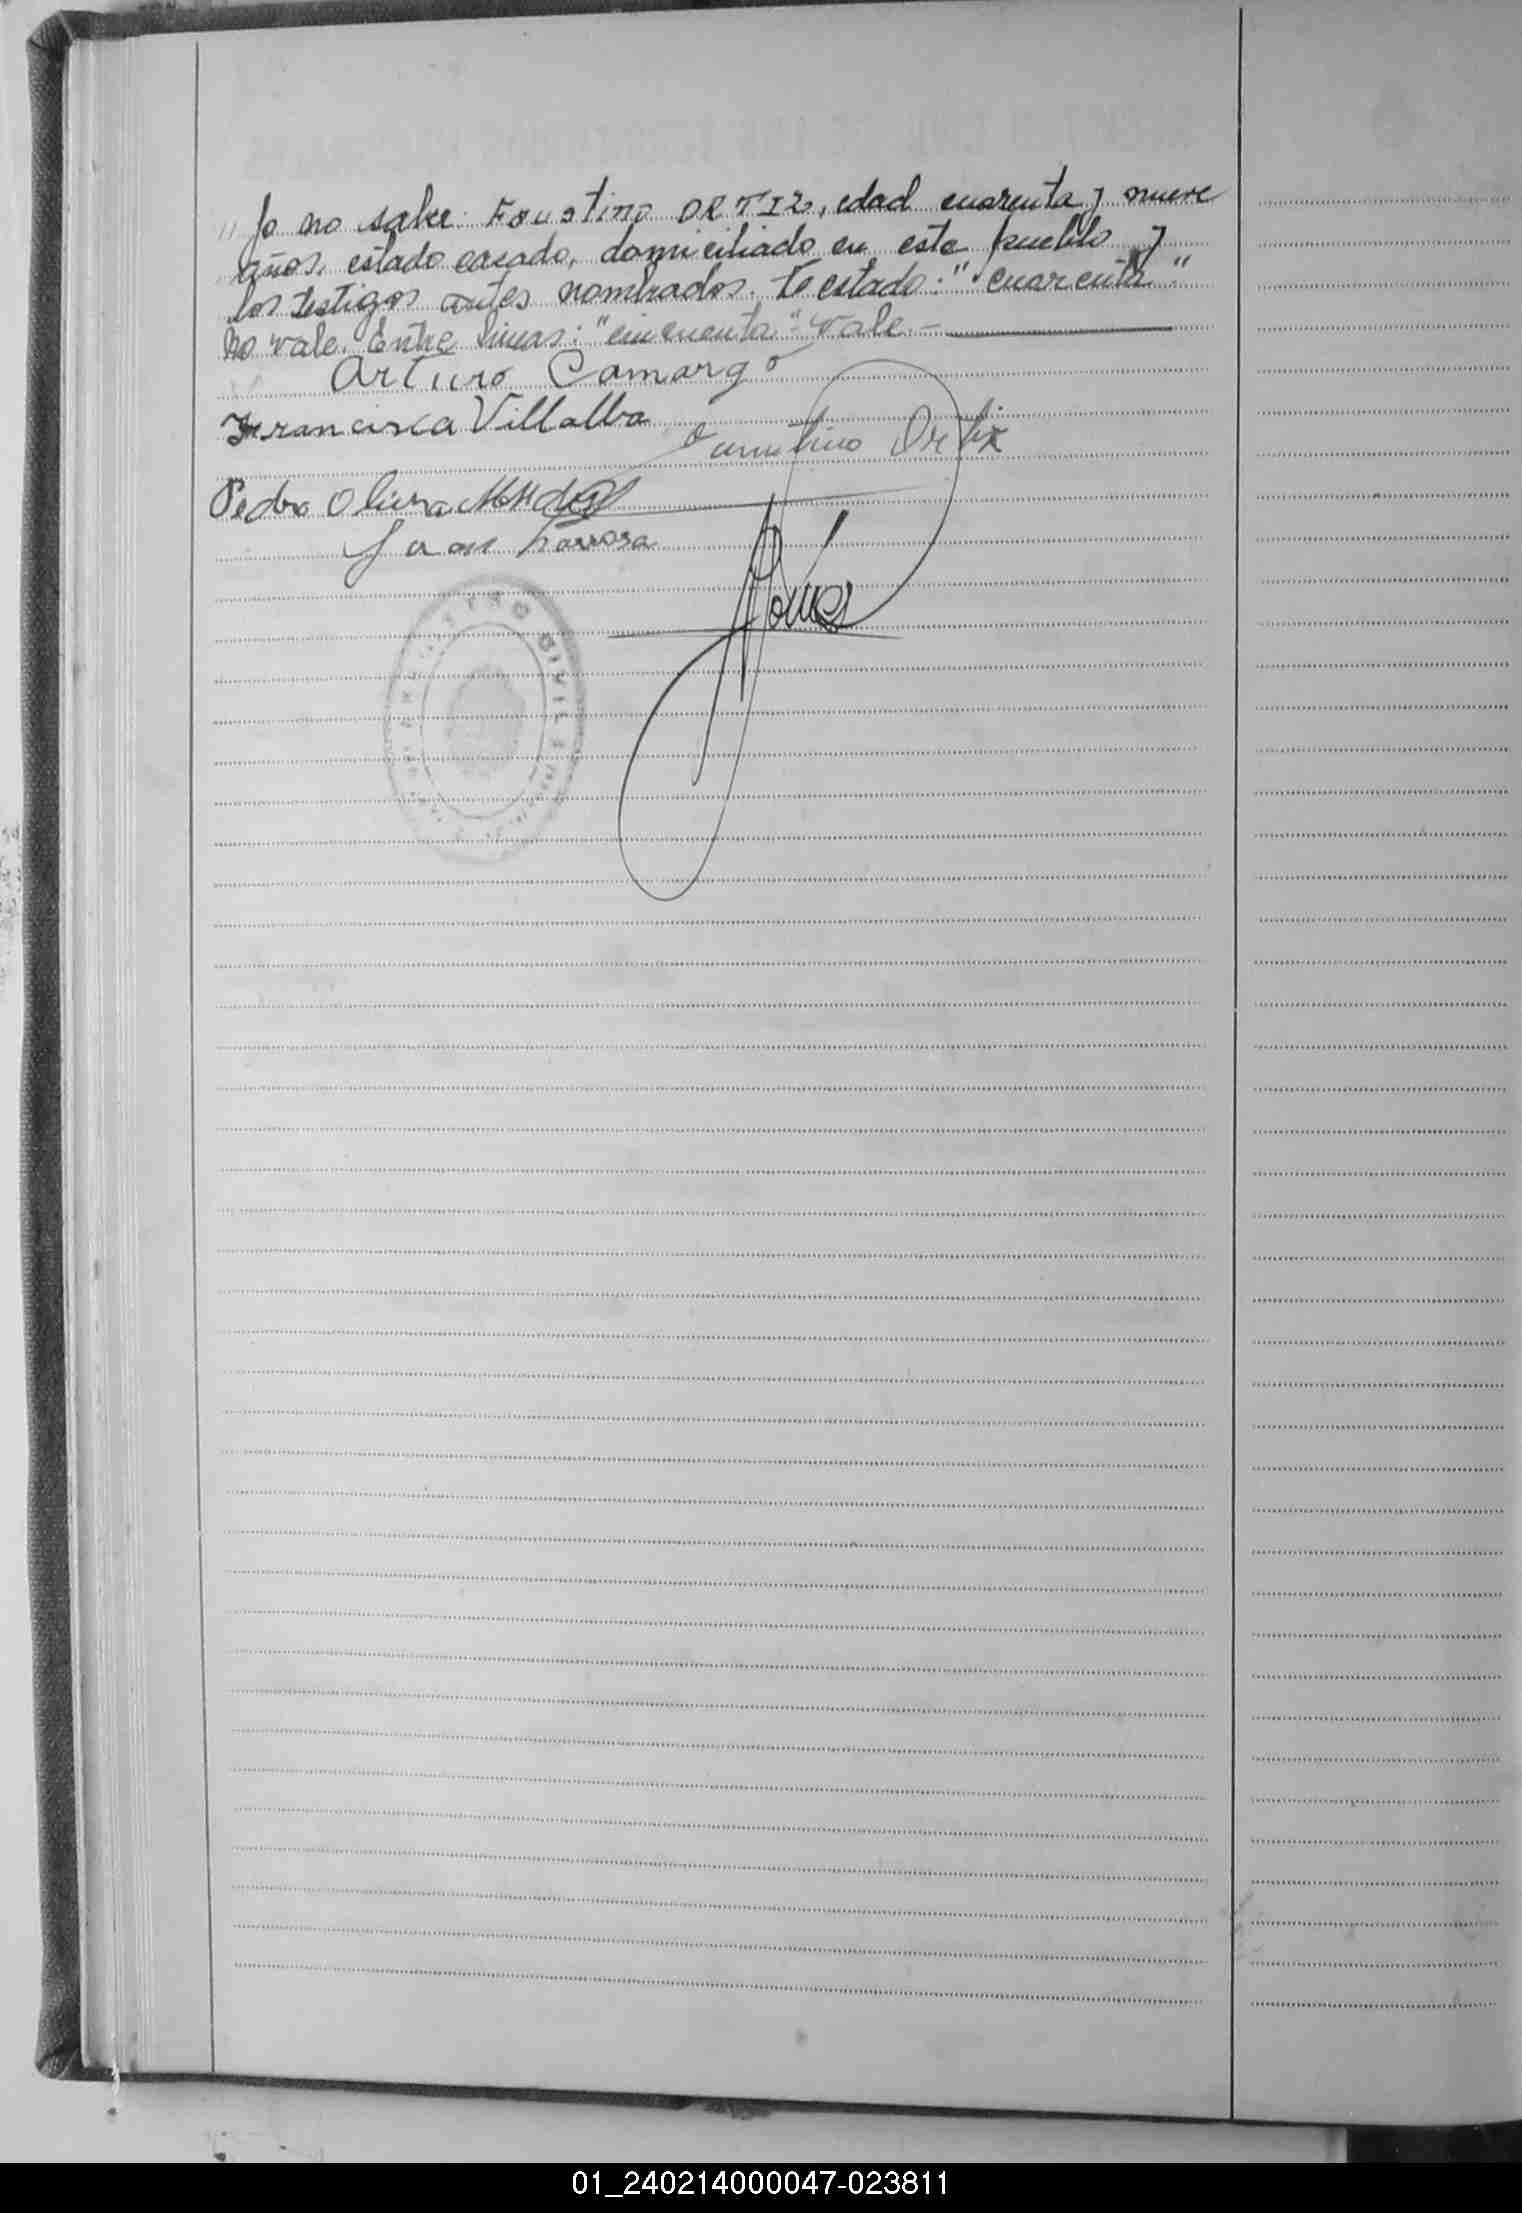 jo no sabe: Faustino ORTIZ, edad cuarenta y nueve
años, estado casado, domiciliado en este pueblo y
los testigos antes nombrados. Testado: "cuarenta"
no vale. Entre lineas: "cincuenta" vale. —
Arturo Camargo
Francisca Villalba
Faustino Ortiz
Pedro Olivera
Juan Barrosa
REGISTRO CIVIL
01_240214000047-023811